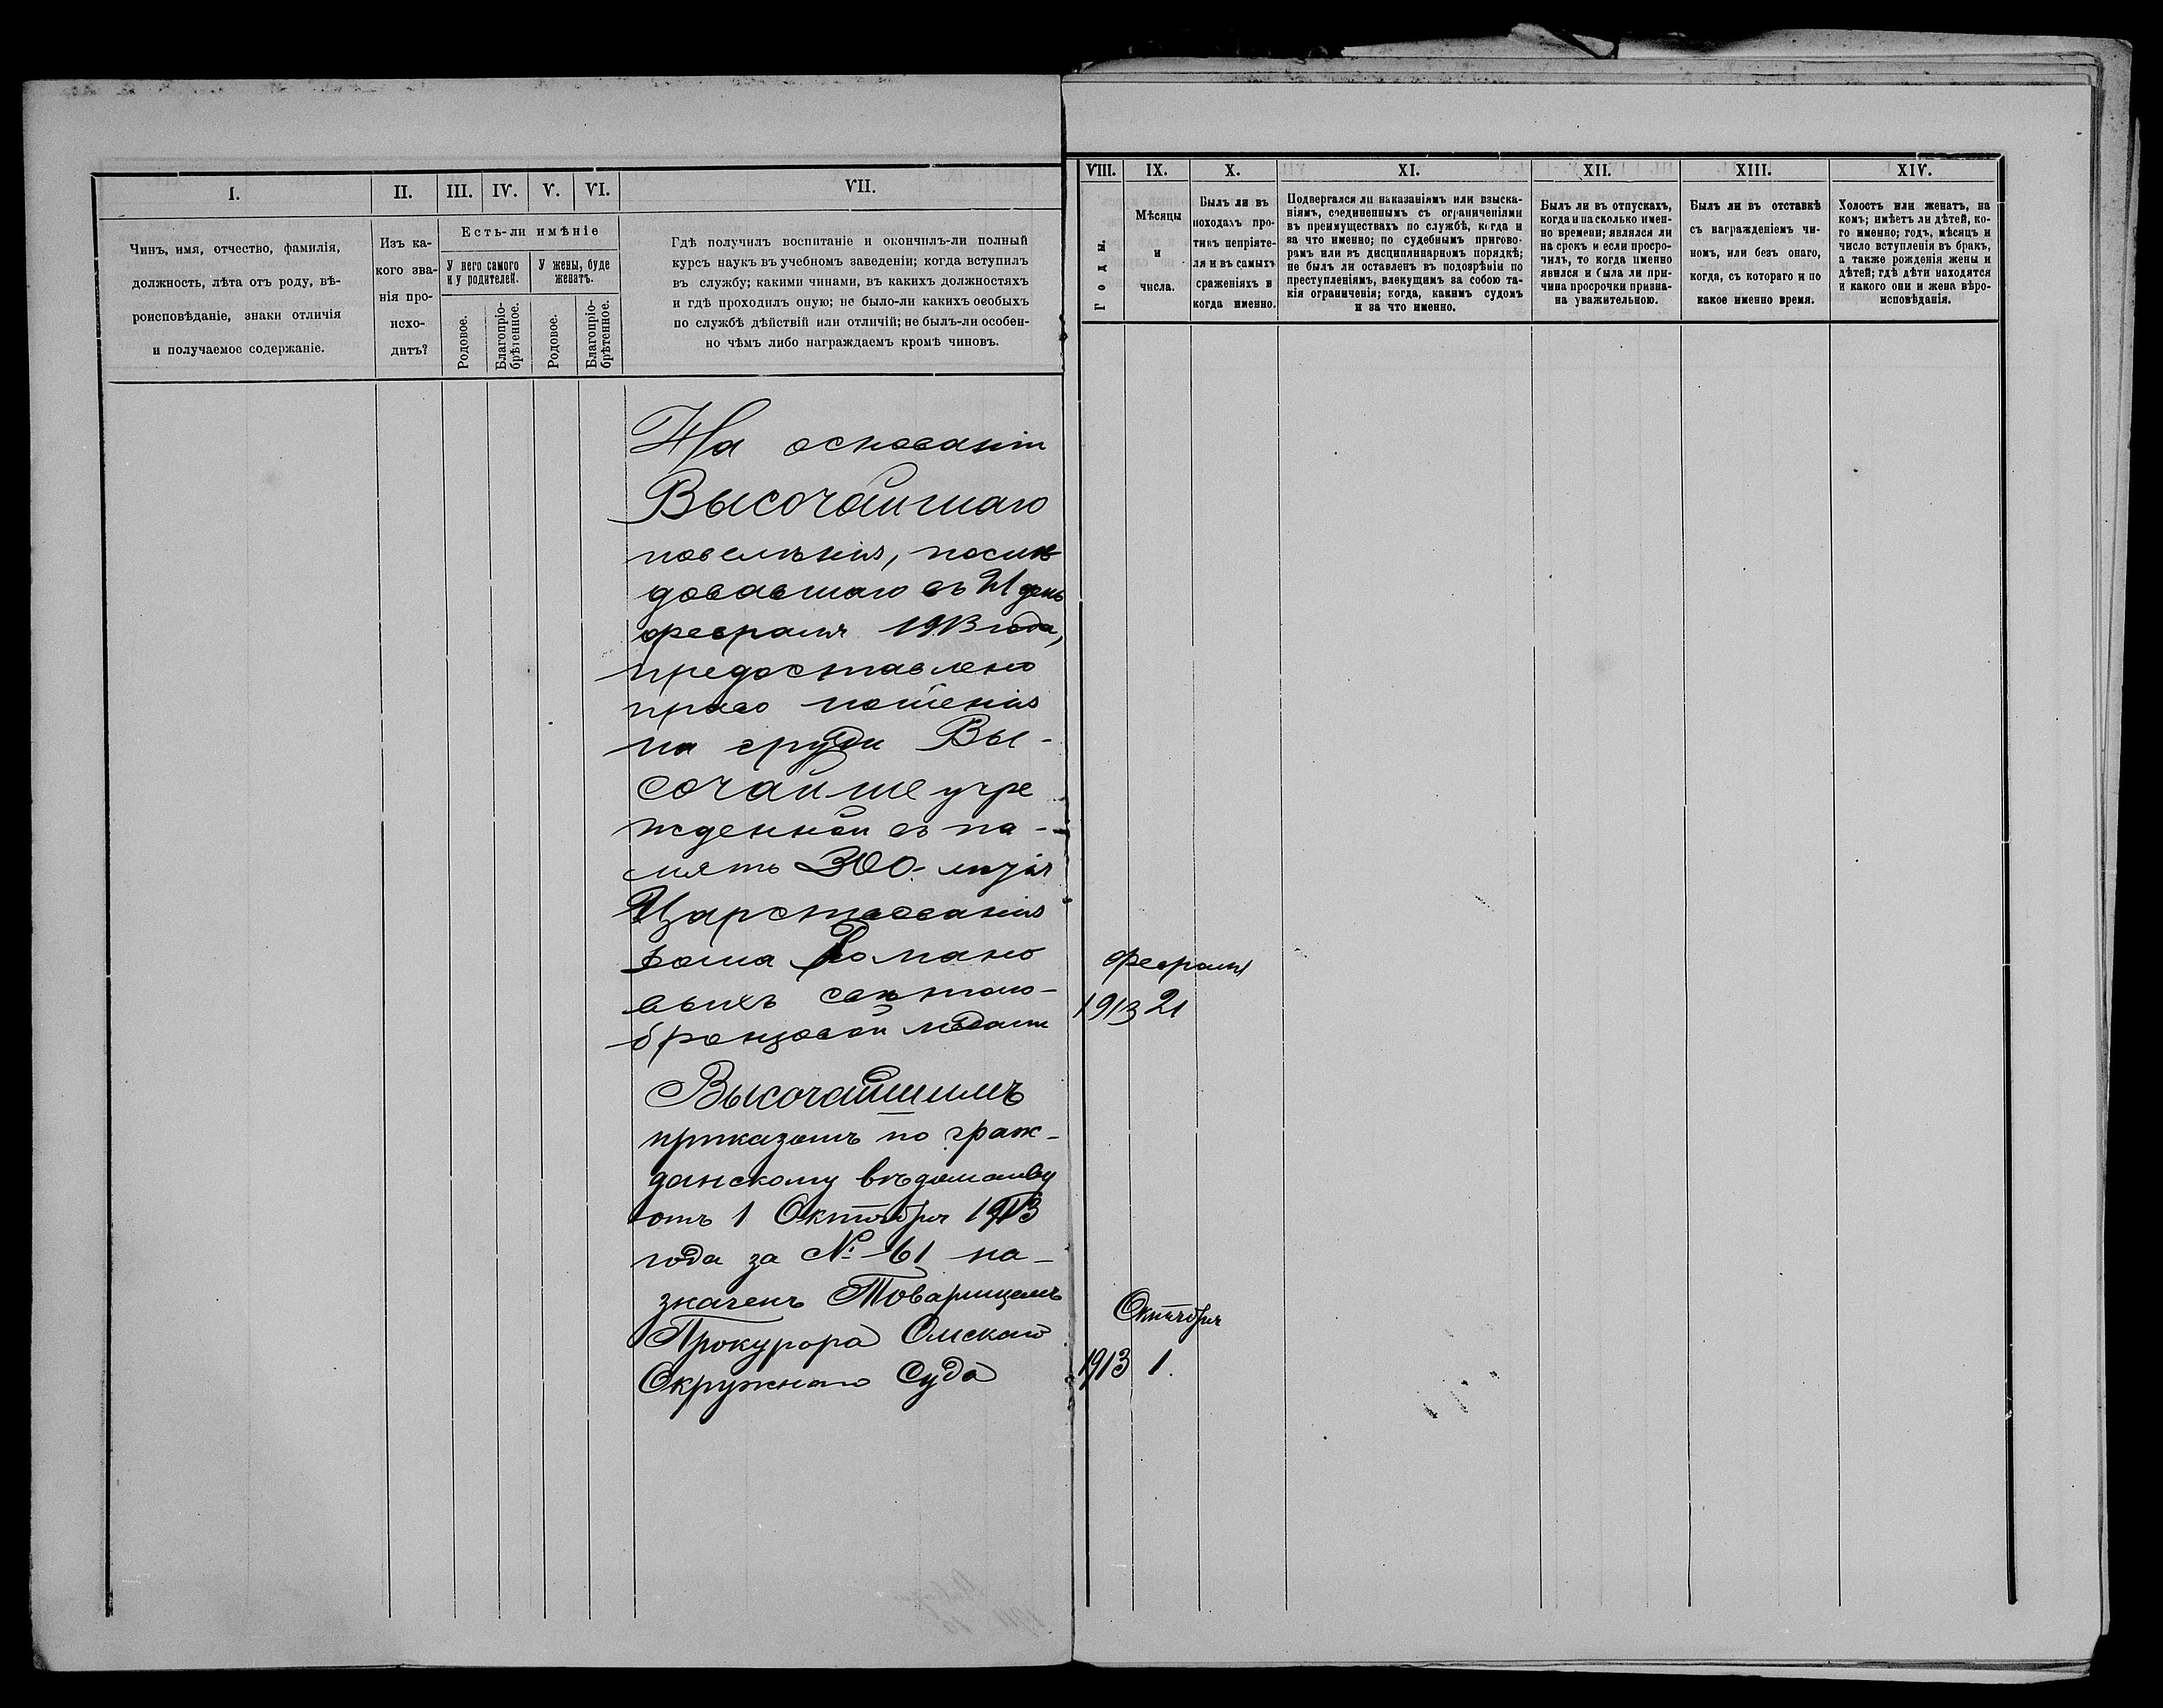 I.
II.
III.
IV.
V.
VI.
VII.
Чинъ, имя, отчество, фамилія,
должность, лѣта отъ роду, вѣ-
роисповѣданіе, знаки отличія
и получаемое содержаніе.
Изъ ка-
кого зва-
нія про-
исхо-
дитъ?
Есть-ли имѣніе
У него самого
и у родителей.
У жены, буде
женатъ.
Родовое.
Благопріо-
брѣтенное.
Родовое.
Благопріо-
брѣтенное.
Гдѣ получилъ воспитаніе и окончилъ-ли полный
курсъ наукъ въ учебномъ заведеніи; когда вступилъ
въ службу; какими чинами, въ какихъ должностяхъ
и гдѣ проходилъ оную; не было-ли какихъ особыхъ
по службѣ дѣйствій или отличій; не былъ-ли особен-
но чѣмъ либо награждаемъ кромѣ чиновъ.
На основаніи
Высочайшаго
повелѣнія, послѣ
довавшаго въ 21 день
февраля 1913 года,
предоставлено
право ношенія
на груди Вы-
сочайше учре
жденной въ па-
мять 300-лѣтія
Царствованія
Дома Романо
выхъ свѣтло-
бронзовой медали
Высочайшимъ
приказомъ по граж-
данскому вѣдомству
отъ 1 Октября 1913
года за № 61 на-
значенъ Товарищемъ
Прокурора Омскаго
Окружнаго Суда
VIII.
IX.
X.
XI.
XII.
XIII.
XIV.
Годы.
Мѣсяцы
и
числа.
Былъ ли въ
походахъ про-
тивъ непріяте-
ля и въ самыхъ
сраженіяхъ и
когда именно.
Подвергался ли наказаніямъ или взыска-
ніямъ, соединеннымъ съ ограниченіями
въ преимуществахъ по службѣ, когда и
за что именно; по судебнымъ пригово-
рамъ или въ дисциплинарномъ порядкѣ;
не былъ ли оставленъ въ подозрѣніи по
преступленіямъ, влекущимъ за собою та-
кія ограниченія; когда, какимъ судомъ
и за что именно.
Былъ ли въ отпускахъ,
когда и насколько имен-
но времени; являлся ли
на срокъ и если просро-
чилъ, то когда именно
явился и была ли при-
чина просрочки призна-
на уважительною.
Былъ ли въ отставкѣ
съ награжденіемъ чи-
номъ, или безъ онаго,
когда, съ котораго и по
какое именно время.
Холостъ или женатъ, на
комъ; имѣетъ ли дѣтей, ко-
го именно; годъ, мѣсяцъ и
число вступленія въ бракъ,
а также рожденія жены и
дѣтей; гдѣ дѣти находятся
и какого они и жена вѣро-
исповѣданія.
Февраля
1913 21
Октября
1913 1.